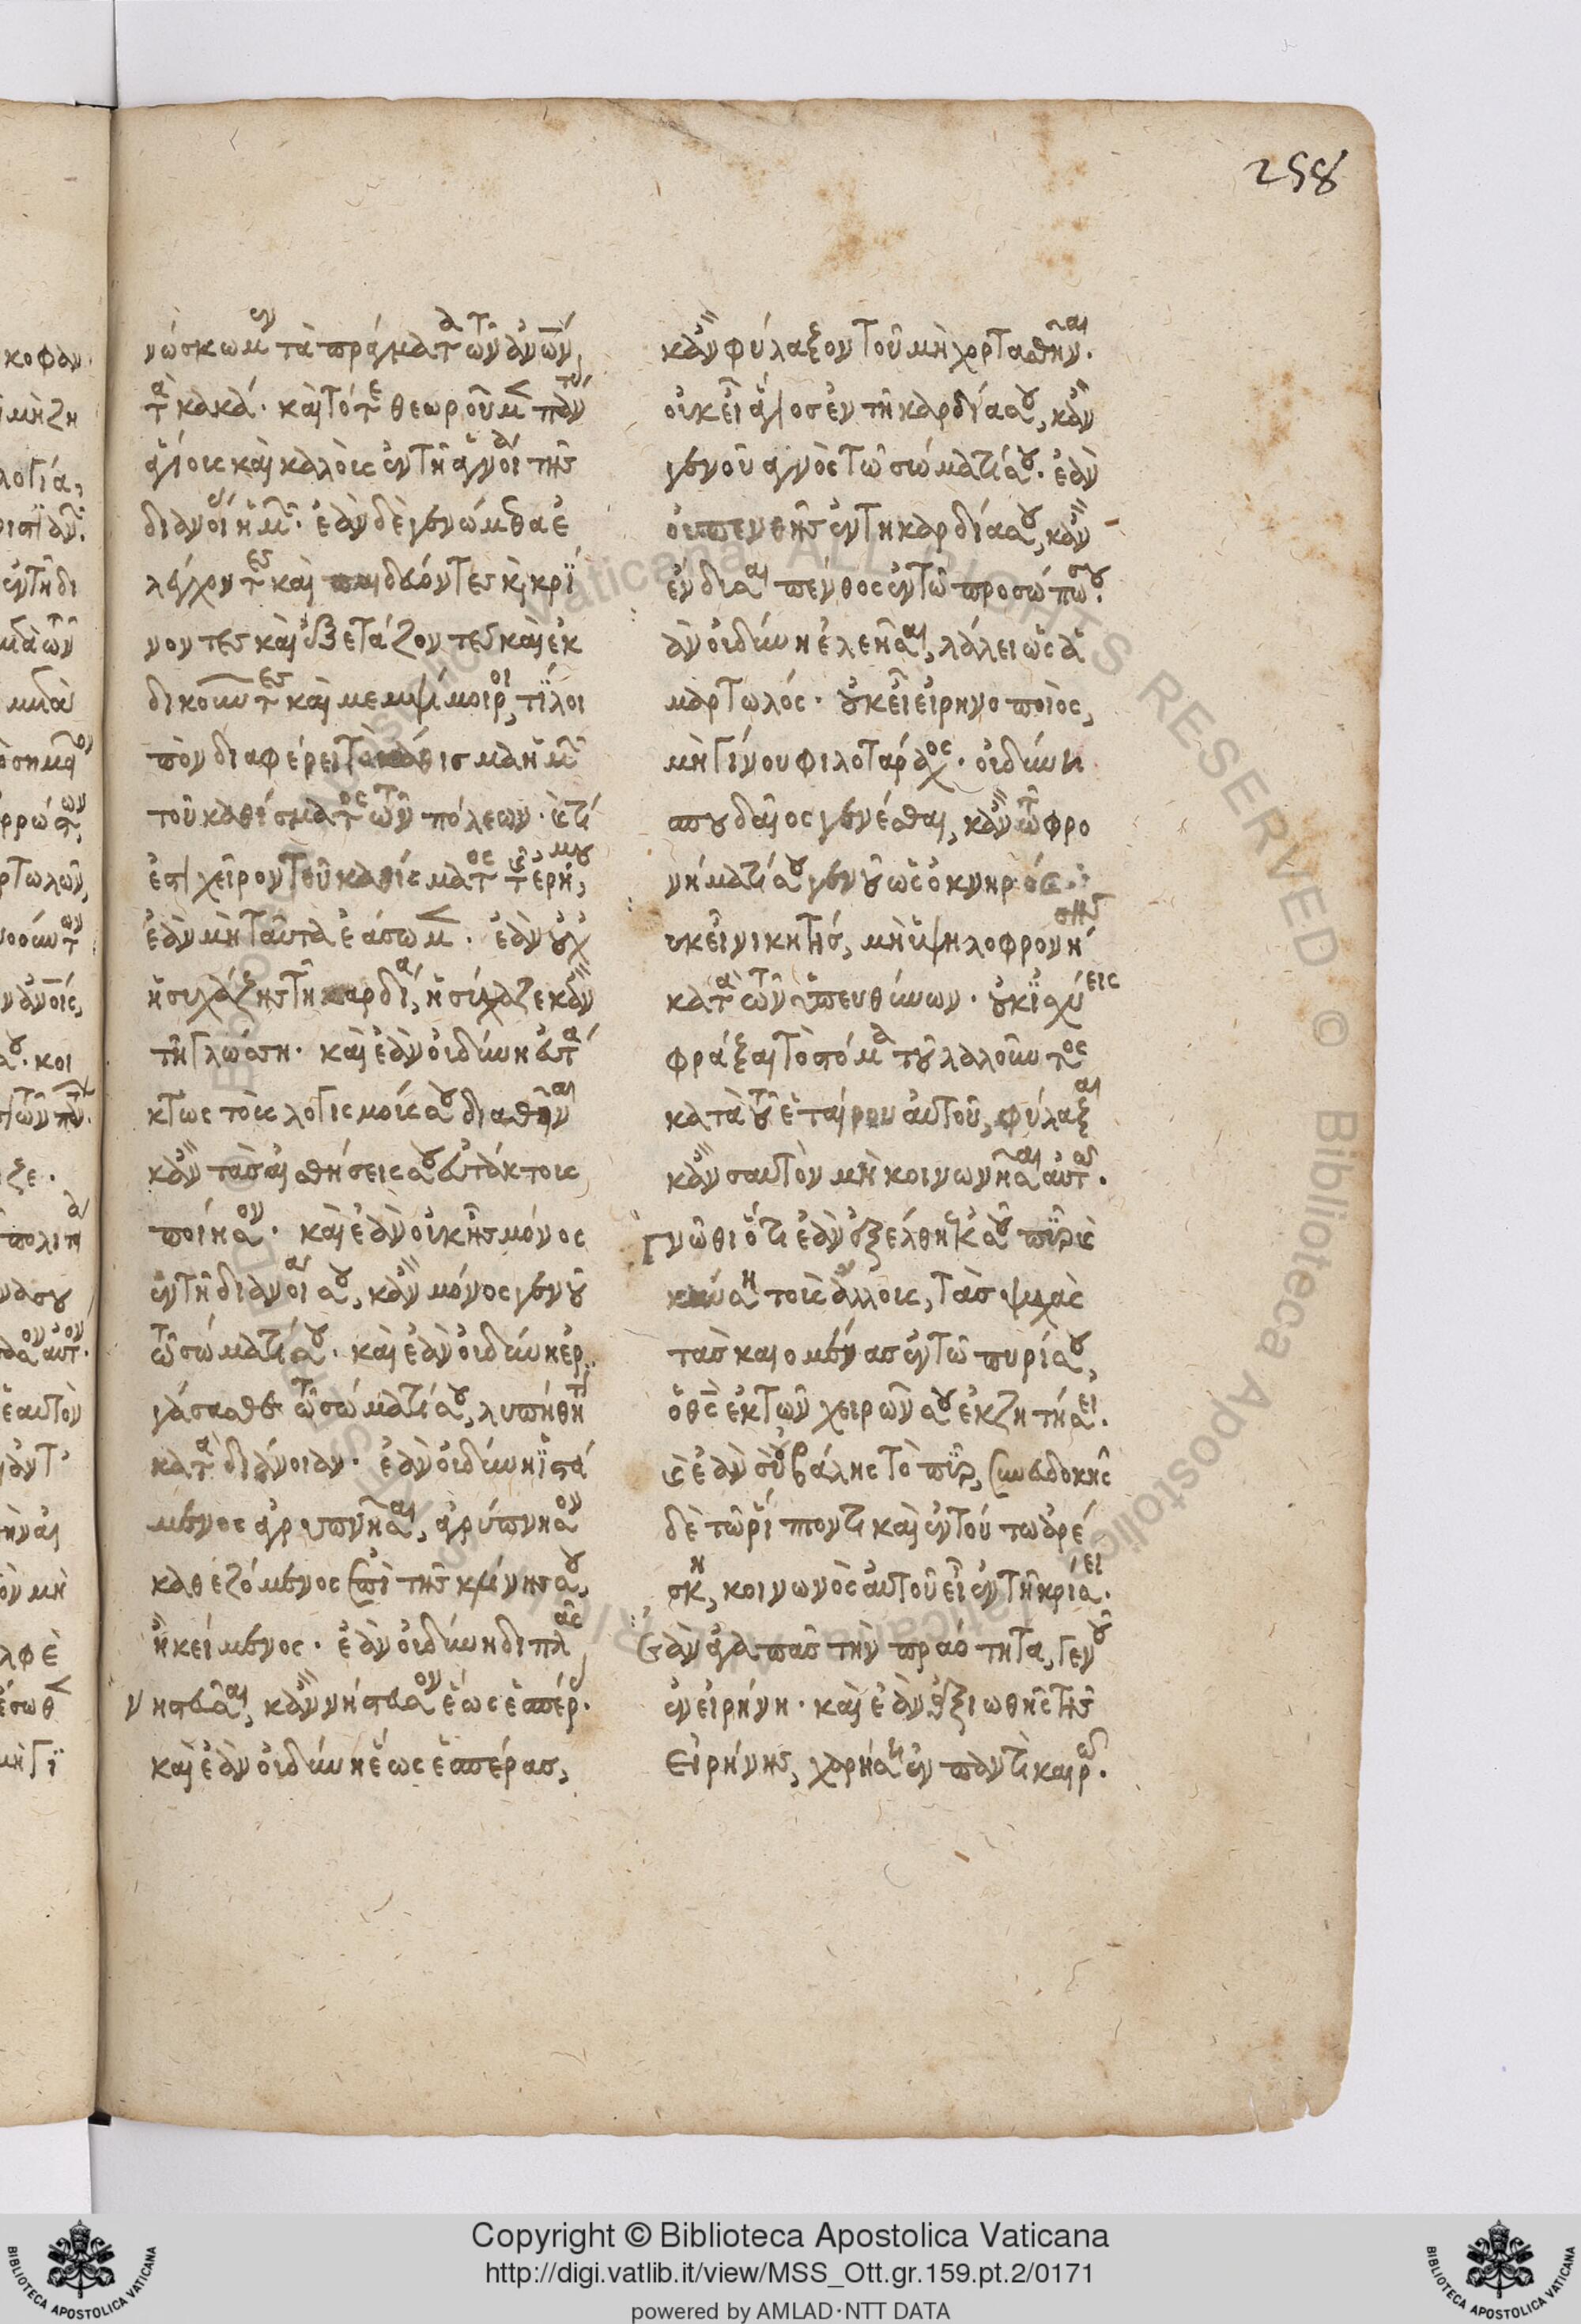 258
νώσκωμεν τὰ πράγματα τῶν ἀνων,
τὰ κακά. καὶ τότε θεωροῦμεν πάντας
ἁγίοις καὶ καλοῖς ἐν τῇ ἁγνοίᾳ τῆς
διανοίας ἡμῶν. ἐὰν δὲ γενώμεθα ἐ
λέγχοντες καὶ παιδεύοντες καὶ κρί
νοντες καὶ ἐξετάζοντες καὶ ἐκ
δικοῦντες καὶ μεμψίμοιροι, τί λοι
πὸν διαφέρει τὸ κάθισμα ἡμῶν
τοῦ καθίσματος τῶν πόλεων. καὶ τί
ἐστι χεῖρον τοῦ καθίσματος τῆς ἐρήμου,
ἐὰν μὴ ταῦτα ἐάσωμεν. ἐὰν οὐχ
ἡσυχάζῃς τῇ καρδίᾳ, ἡσύχαζε κἂν
τῇ γλώσσῃ. καὶ ἐὰν οὐ δύνῃ εὐτά
κτως τοῖς λογισμοῖς σου διαθεῖναι
κἂν τὰς αἰσθήσεις σου εὐτάκτοις
ποίησον. καὶ ἐὰν οὐκ ῇς μόνος
ἐν τῇ διανοίᾳ σου, κἂν μόνος γενοῦ
τῷ σώματί σου. καὶ ἐὰν οὐ δύνῃ ἐρ
γάσασθαι τῷ σώματί σου, λυπήθητι
κατὰ διάνοιαν. ἐὰν οὐ δύνῃ ἱστά
μενος ἀγρυπνῆσαι, ἀγρύπνησον
καθεζόμενος ἐπὶ τῆς κλίνης σου,
ἢ κείμενος. ἐὰν οὐ δύνῃ διπλᾶς
νηστεῦσαι, κἂν νήστευσον ἕως ἑσπέρας.
καὶ ἐὰν οὐ δύνῃ ἕως ἑσπέρας,
κἂν φύλαξον τοῦ μὴ χορτασθῆναι.
οὐκ εἶ ἅγιος ἐν τῇ καρδίᾳ σου, κἂν
γενοῦ ἁγνὸς τῷ σώματί σου. ἐὰν
οὐ πενθῇς ἐν τῇ καρδίᾳ σου, κἂν
ἔνδυσαι πένθος ἐν τῷ προσώπῳ σου.
ἂν οὐ δύνῃ ἐλεῆσαι, λάλει ὡς ἁ
μαρτωλός. οὐκ εἶ εἰρηνοποιός,
μὴ γίνου φιλοτάραχος. οὐ δύνῃ
σπουδαῖος γενέσθαι, κἂν τῷ φρο
νήματί σου γενοῦ ὡς ὀκνηρός.
οὐκ εἶ νικητής, μὴ ὑψηλοφρονήσῃς
κατὰ τῶν ὑπευθύνων. οὐκ ἰσχύεις
φράξαι τὸ στόμα τοῦ λαλοῦντος
κατὰ τοῦ ἑταίρου αὐτοῦ, φύλαξαι
κἂν σαυτὸν μὴ κοινωνῆσαι αὐτῷ.
Γνῶθι ὅτι ἐὰν ἐξέλθῃ ἐκ σοῦ πῦρ καὶ
καύσῃ τοὺς ἄλλους, τὰς ψυχὰς
τὰς καιομένας ἐν τῷ πυρί σου,
ὁ θς ἐκ τῶν χειρῶν σου ἐκζητήσει.
καὶ ἐὰν σὺ οὐ βάλῃς τὸ πῦρ, συνευδοκῇς
δὲ τῷ ῥίπτοντι καὶ ἐν τούτῳ ἀρέ
σκῃ, κοινωνὸς αὐτοῦ εἶ ἐν τῇ κρίσει.
Ἐὰν ἀγαπᾷς τὴν πραότητα, γενοῦ
ἐν εἰρήνῃ. καὶ ἐὰν ἀξιωθῇς τῆς
εἰρήνης, χαρήσῃ ἐν παντὶ καιρῷ.
Copyright © Biblioteca Apostolica Vaticana
http://digi.vatlib.it/view/MSS_Ott.gr.159.pt.2/0171
powered by AMLAD·NTT DATA